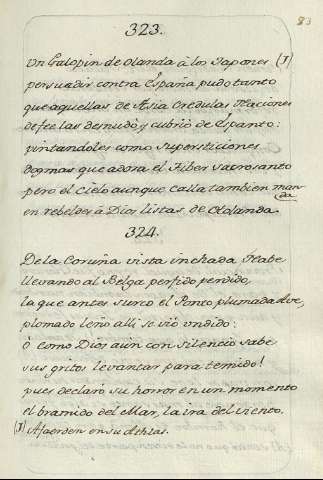 83
323.
Un Galopin de Olanda à los Japones (J)
persuadir contra España pudo tanto
que aquellas de Asia credulas Naciones
de fee las desnudò y cubriò de Espanto:
pintandoles como supersticiones
Dogmas que adora el Tiber sacrosanto
pero el Cielo aunque calla tambien man-
da
en rebeldes à Dios listas de Ololanda.
324.
De la Coruña vista inchada Nabe
llevando al Belga perfido perdido,
la que antes surcò el Ponto plumada Ave,
plomado leño alli se viò undido:
ò como Dios aùn con silencio sabe
sus gritos levantar para temido!
pues declarò su horror en un momento
el bramido del Mar, la ira del viento.
(J) Afaerden en su Athlas.